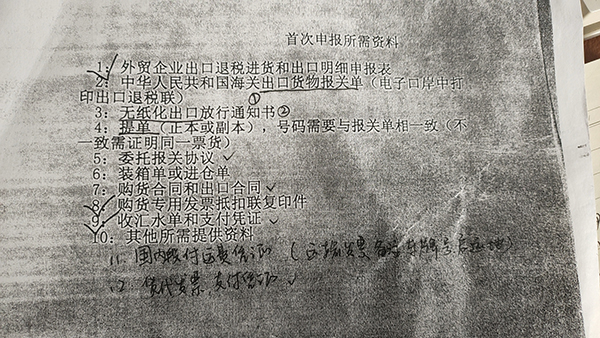 首次申报所需资料
1：外贸企业出口退税进货和出口明细申报表
2：中华人民共和国海关出口货物报关单（电子口岸中打
印出口退税联） ①
3：无纸化出口放行通知书②
4：提单（正本或副本），号码需要与报关单相一致（不
一致需证明同一票货）
5：委托报关协议
6：装箱单或进仓单
7：购货合同和出口合同
8：购货专用发票抵扣联复印件
9：收汇水单和支付凭证
10：其他所需提供资料
11. 国内支付运费凭证（运输发票备注车牌号
12 货代发票，支付凭证